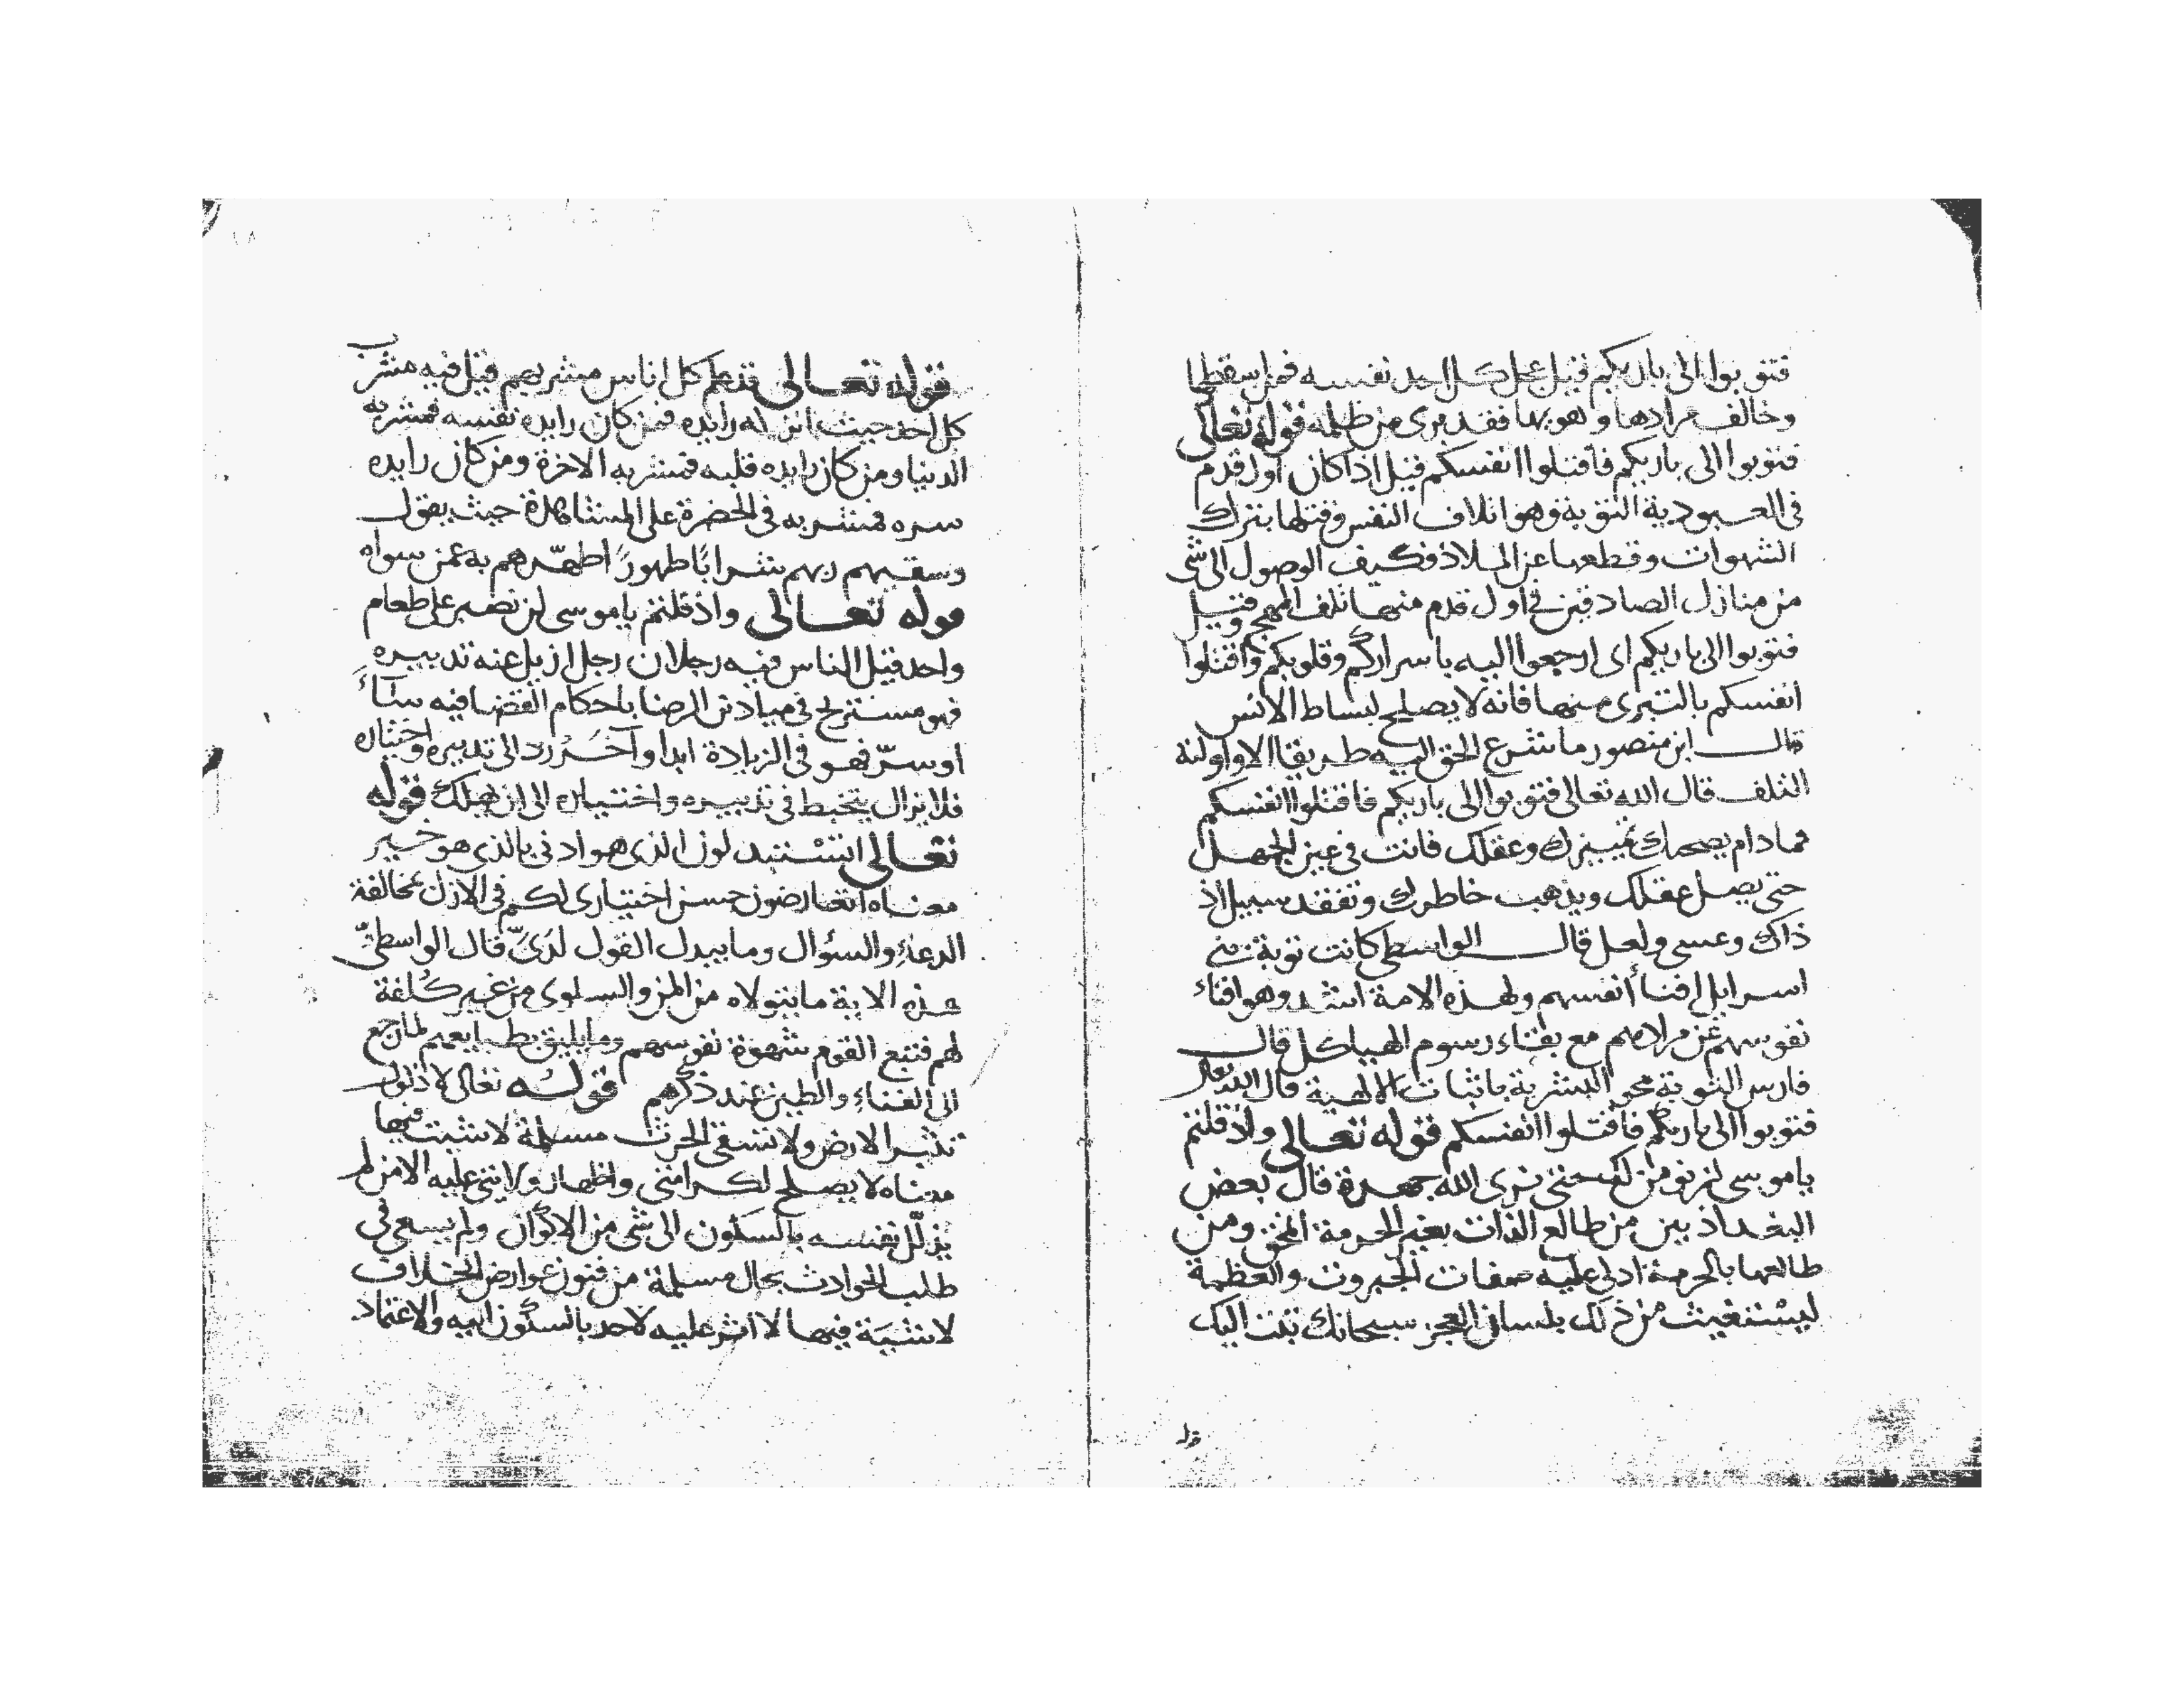 فتوبوا الى باريكم قيل عجل كل احد نفسه فمن اسقطها
وخالف مرادها وهويها فقد برى من ظلمه قوله تعالى
فتوبوا الى باريكم فاقتلوا انفسكم قيل اذا كان اول قدم
فى العبودية التوبة وهو اتلاف النفس وقتلها بترك
الشهوات وقطعها عن الملاذ فكيف الوصول الى شى
من منازل الصادقين فى اول قدم منها تلف المهج وقيل
فتوبوا الى باريكم اى ارجعوا اليه باسراركم وقلوبكم واقتلوا
انفسكم بالتبرى منها فانه لا يصلح لبساط الانس
قال ابن منصور ما شرع الحق اليه طريقا الا واوله
التلف قال الله تعالى فتوبوا الى باريكم فاقتلوا انفسكم
فما دام يصحبك تمييزك وعقلك فانت فى عين الجهل
حتى يضل عقلك ويذهب خاطرك وتفقد سبيل اذ
ذاك وعسى ولعل قال الواسطى كانت توبة بنى
اسرايل افنا أنفسهم ولهذه الامة اشد وهو افناء
نفوسهم عن مرادهم مع بقاء رسوم الهياكل قال
فارس التوبة محو البشرية باثبات الالهية قال الله تعالى
فتوبوا الى باريكم فاقتلوا انفسكم قوله تعالى واذ قلتم
ياموسى لن نومن لك حتى نرى الله جهرة قال بعض
البغداذيين من طالع الذات بغير الحرمة انمحق ومن
طالعها بالحرمة ادلى عليه صفات الجبروت والعظمة
ليستغيث من ذلك بلسان العجز سبحانك تبت اليك
قوله تعالى قد علم كل اناس مشربهم قيل فيه مشرب
كل احد حيث انزله رايده فمن كان رايده نفسه فمشربه
الدنيا ومن كان رايده قلبه فمشربه الاخرة ومن كان رايده
سره فمشربه فى الحضرة على المشاهدة حيث يقول
وسقيهم ربهم شرابًا طهورًا طهّرهم به عن سواه
قوله تعالى واذ قلتم ياموسى لن نصبر على طعام
واحد قيل الناس فيه رجلان رجل ازيل عنه تدبيره
فهو مستريح فى ميادين الرضا باحكام القضا فيه ساءَ
او سرّ فهو فى الزيادة ابدا وآخَر رد الى تدبيره واختياره
فلا يزال يتخبط فى تدبيره واختياره الى ان يهلك قوله
تعالى اتستبدلون الذى هو ادنى بالذى هو خير
معناه اتعارضون حسن اختيارى لكم فى الازل بمخالفة
الدعاءِ والسؤال وما يبدل القول لدىّ قال الواسطى
هذه الاية ما يتولاه من المن والسلوى من غير كُلفة
لهم فتتبع القوم شهوة نفوسهم وما يليق بطبايعهم لما رجع
الى القثاءِ والطين عند ذكرهم قوله تعالى لا ذلول
تثير الارض ولا تسقى الحرث مسلمة لا شية فيها
معناه لا يصلح لكرامتى واظهار ولايتى عليه الا من لم
يذلّل نفسه بالسكون الى شى من الاكوان ولم يسع فى
طلب الحوادث بحال مسلمة من فنون عوارض الخلاف
لا شية فيها لا اثر عليه لاحد بالسكون اليه والاعتماد